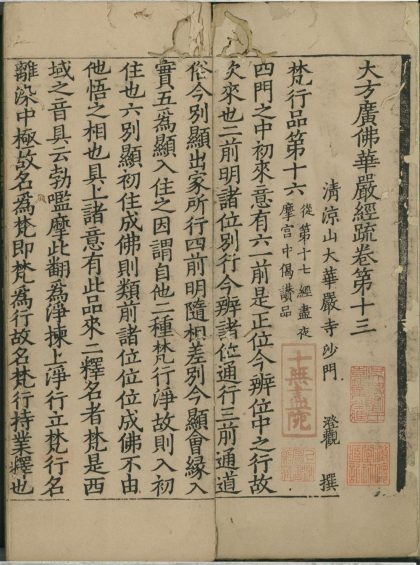 大方廣佛華嚴經疏卷第十三
清涼山大華嚴寺沙門 澄觀 撰
梵行品第十六
從第十七經盡夜
摩宫中偈讚品
四門之中初來意有六一前是正位今辨位中之行故
次來也二前明諸位別行今辨諸位通行三前通道
俗今別顯出家所行四前明隨相差別今顯會緣入
實五為顯入住之因謂自他二種梵行淨故則入初
住也六別顯初住成佛則類前諸位位位成佛不由
他悟之相也具上諸意有此品來二釋名者梵是西
域之音具云勃嚂摩此翻為淨揀上淨行立梵行名
離染中極故名為梵即梵為行故名梵行持業釋也
十無盡院